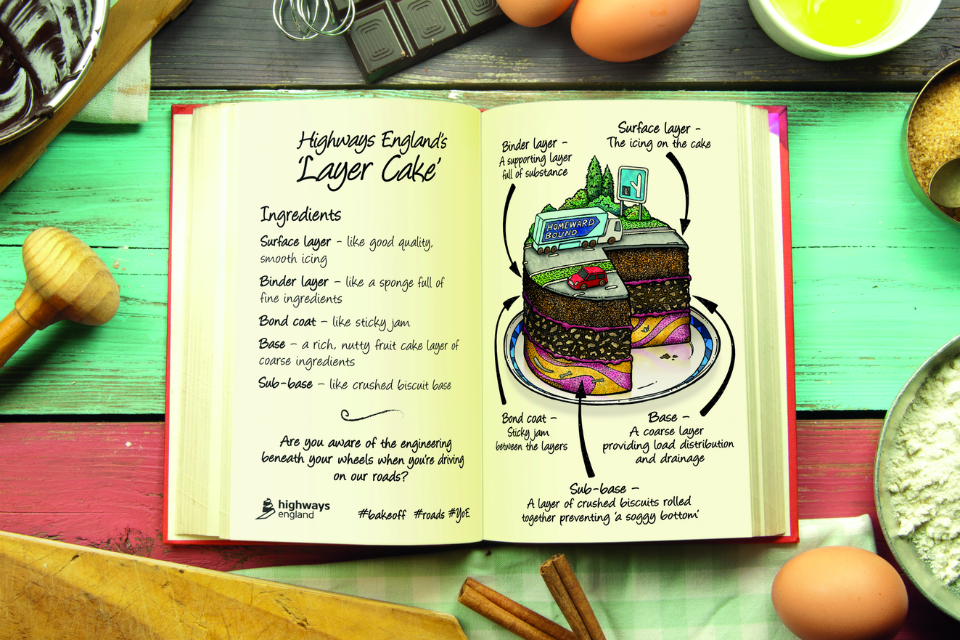 Highways England's
'Layer Cake'
Ingredients
Surface layer – like good quality,
smooth icing
Binder layer – like a sponge full of
fine ingredients
Bond coat – like sticky jam
Base – a rich, nutty fruit cake layer of
coarse ingredients
Sub-base – like crushed biscuit base
Are you aware of the engineering
beneath your wheels when you're driving
on our roads?
highways
england
#bakeoff #roads #YoE
Binder layer –
A supporting layer
full of substance
Surface layer –
The icing on the cake
HOMEWARD
BOUND
Bond coat –
Sticky jam
between the layers
Base –
A coarse layer
providing load distribution
and drainage
Sub-base –
A layer of crushed biscuits rolled
together preventing 'a soggy bottom'